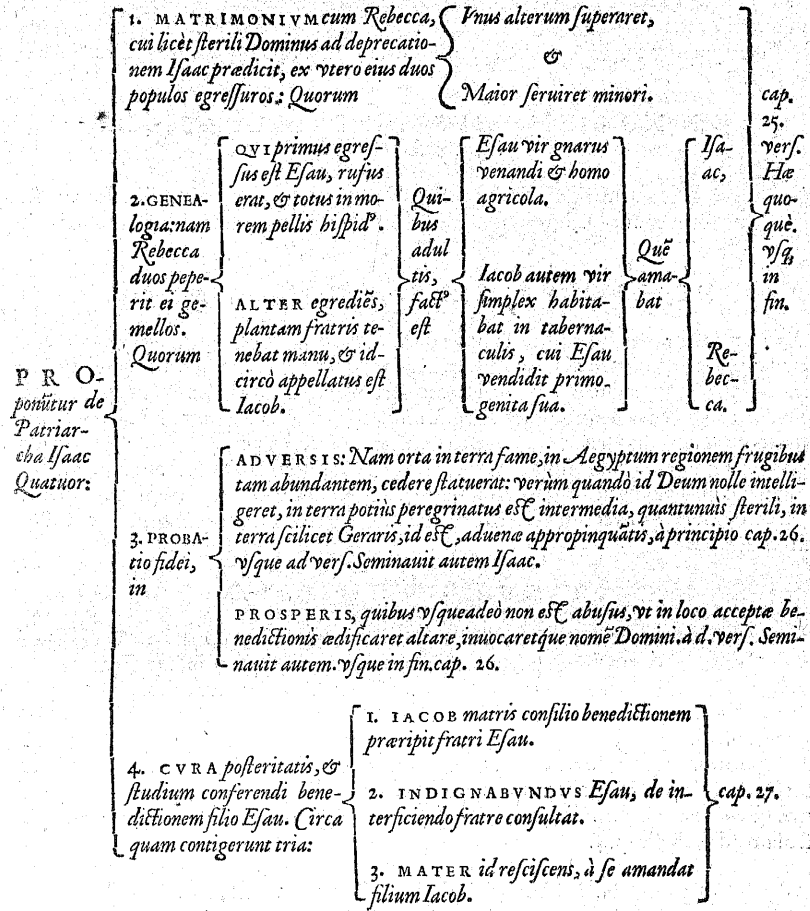 P R O-
ponũtur de
Patriar-
cha Iſaac
Quatuor:
1. MATRIMONIVM cum Rebecca,
cui licèt ſterili Dominus ad deprecatio-
nem Iſaac prædicit, ex vtero eius duos
populos egreſſuros: Quorum
Vnus alterum ſuperaret,
&
Maior ſeruiret minori.
2. GENEA-
logia: nam
Rebecca
duos pepe-
rit ei ge-
mellos.
Quorum
QVI primus egreſ-
ſus eſt Eſau, rufus
erat, & totus in mo-
rem pellis hiſpidꝰ.
ALTER egrediẽs,
plantam fratris te-
nebat manu, & id-
circò appellatus eſt
Iacob.
Qui-
bus
adul
tis,
factꝰ
eſt
Eſau vir gnarus
venandi & homo
agricola.
Iacob autem vir
ſimplex habita-
bat in taberna-
culis, cui Eſau
vendidit primo-
genita ſua.
Quẽ
ama-
bat
Iſa-
ac,
Re-
bec-
ca.
cap.
25.
verſ.
Hæ
quo-
què.
vſq,
in
fin.
3. PROBA-
tio fidei,
in
ADVERSIS: Nam orta in terra fame, in Aegyptum regionem frugibus
tam abundantem, cedere ſtatuerat: verùm quandò id Deum nolle intelli-
geret, in terra potiùs peregrinatus eſt intermedia, quantumuis ſterili, in
terra ſcilicet Geraris, id eſt, aduenæ appropinquãtis, à principio cap. 26.
vſque ad verſ. Seminauit autem Iſaac.
PROSPERIS, quibus vſqueadeò non eſt abuſus, vt in loco acceptæ be-
nedictionis ædificaret altare, inuocaretq́ue nomẽ Domini. à d. verſ. Semi-
nauit autem. vſque in fin. cap. 26.
4. CVRA poſteritatis, &
ſtudium conferendi bene-
dictionem filio Eſau. Circa
quam contigerunt tria:
1. IACOB matris conſilio benedictionem
præripit fratri Eſau.
2. INDIGNABVNDVS Eſau, de in-
terficiendo fratre conſultat.
3. MATER id reſciſcens, à ſe amandat
filium Iacob.
cap. 27.